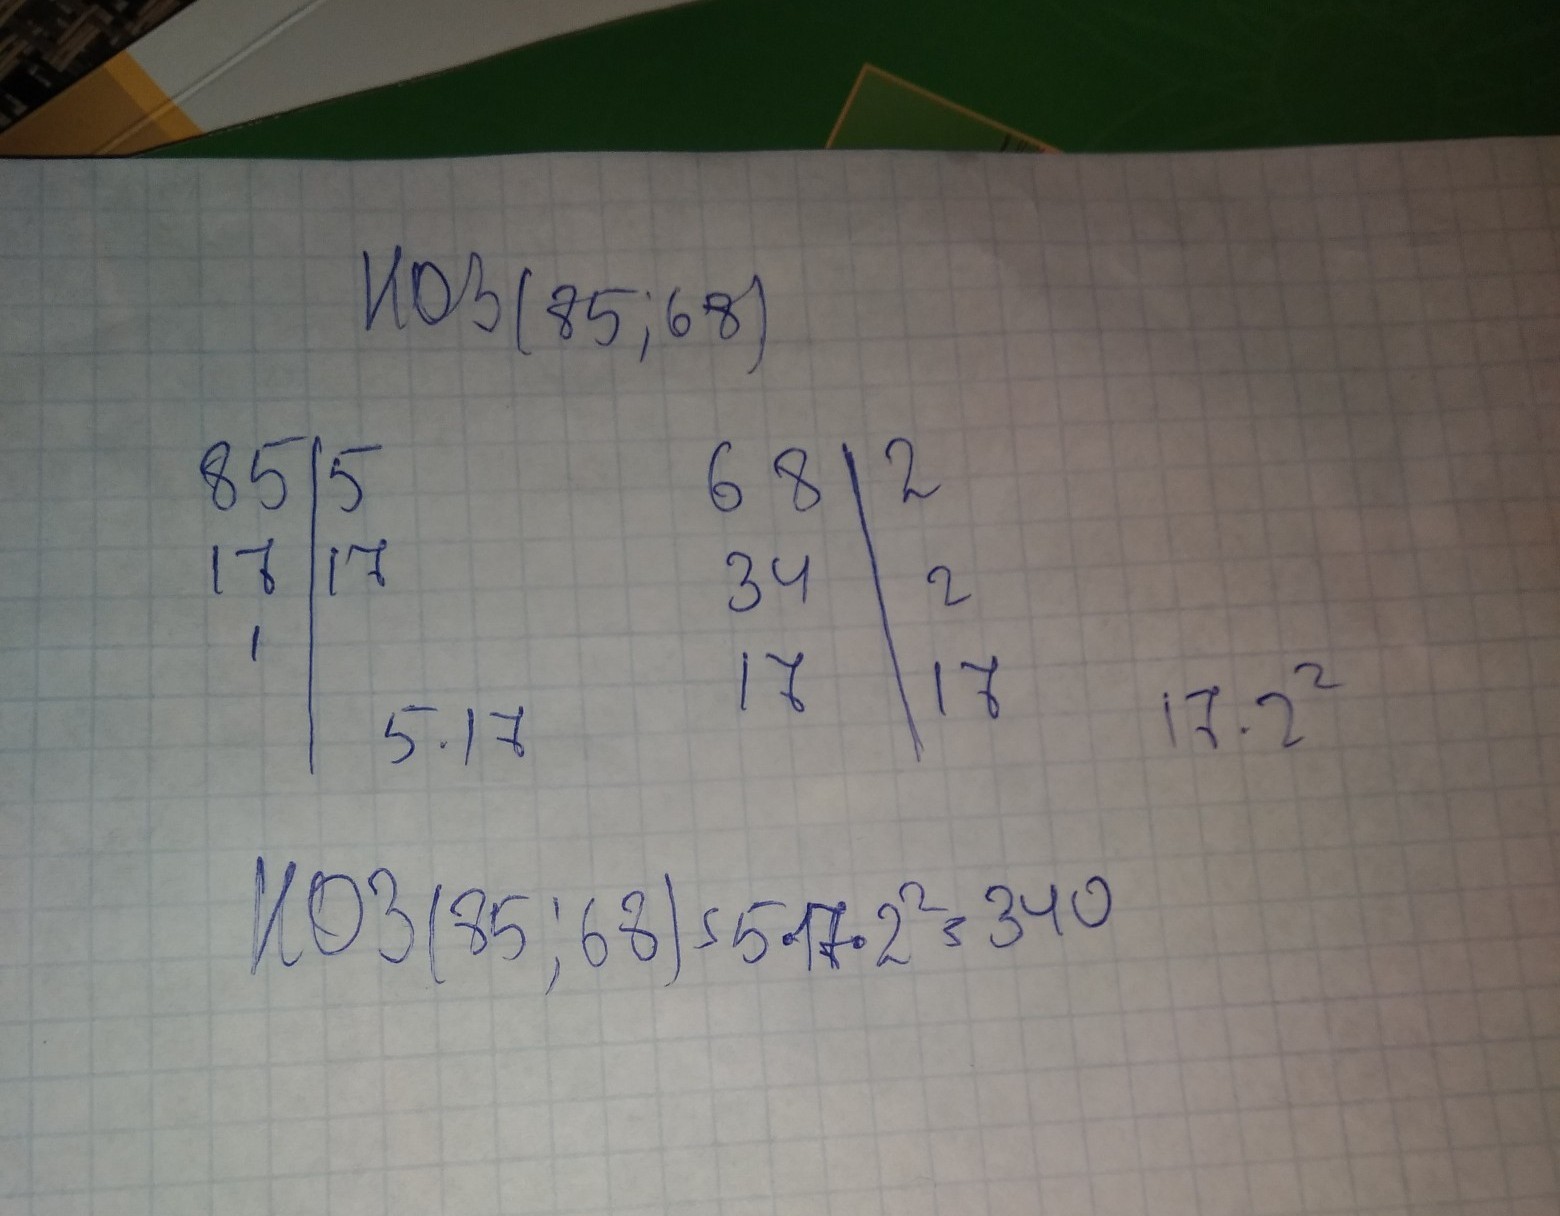 НОЗ(85;68)
85|5
17|17
1
5·17
68|2
34|2
17|17
17·2²
НОЗ(85;68)=5·17·2²=340